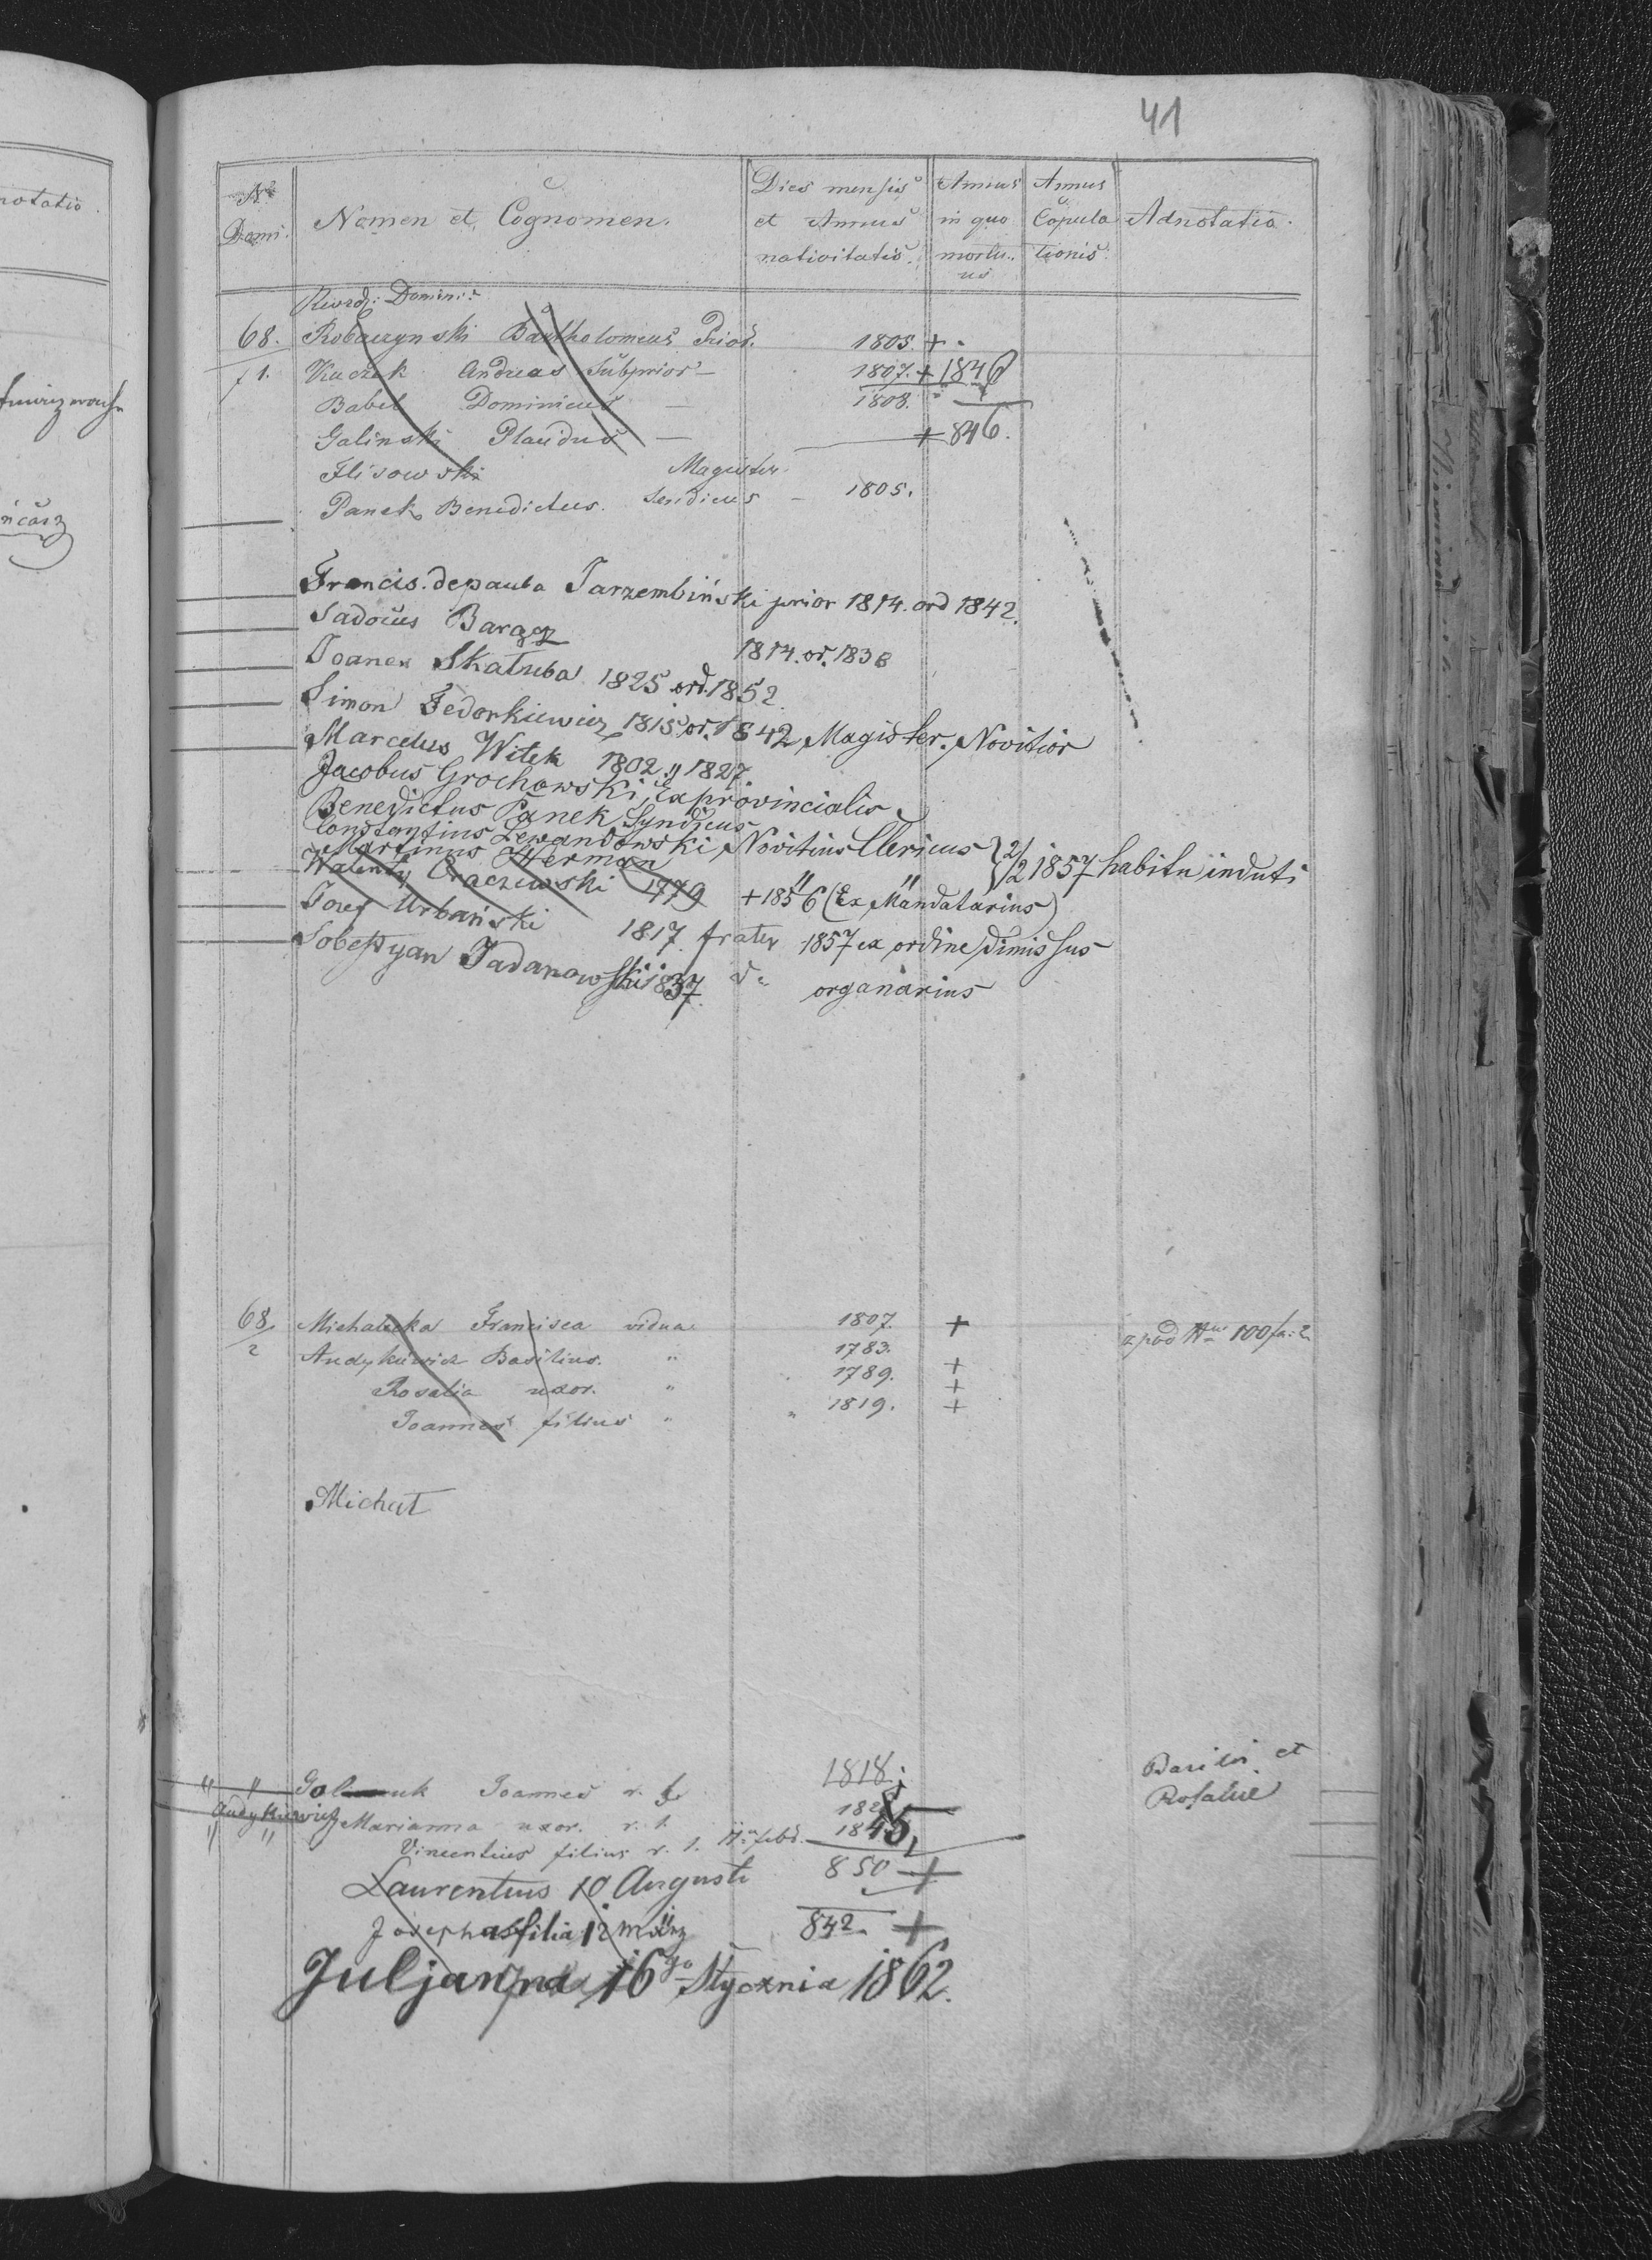 notatio.
41
No Domi.
Nomen et Cognomen.
Dies mensis et Annus nativitatis.
Annus in quo mortuus
Annus Copulationis
Adnotatio.
Revrdi: Domini:
68. Robaczynski Bartholomeus Prior. 1805. +
f 1. Kuczek Andreas Subprior — 1807. + 1846
Babel Dominicus — 1808.
Galinski Placidus — + 846.
Flisowski Magister
Panek Benedictus. Sendicus — 1805.
Francis. de paula Tarzembiński prior 1814. ord 1842.
Sadocus Barącz 1814. or. 1838
Joanes Skałuba 1825 ord. 1852.
Simon Fedorkiewicz 1815. or. 1842 Magister. Novitior
Marcelus Witek 1802 " 1827.
Jacobus Grochowski, Exprovincialis
Benedictus Panek Syndicus
Constantius Lewandowski, Novitius Clericus } 2/2 1857 habitu induti
Martinus Herman " "
Walenty Oraczewski 1779 + 1856 (Ex Mandatarius)
Jozef Urbański 1817. frater 1857 ex ordine dimissus
Sobestyan Jadanowski 1837. d" organarius
68/2 Michalecka Francisca vidua 1807. + z pod Nru 100 fa: 2
Andykiewicz Basilius. " 1783.
Rosalia uxor. " 1789. +
Joannes filius " " 1819. +
Michał
" " Joannes r. l. 1818. Basilii et
Andykiewicz Marianna uxor. r. l. Rosaliae
" " Vincentius filius r. l. 1845
Laurentius 10 Augusti 850 +
Josepha filia 12 März 842. +
Juljanna 16go Stycznia 1862.